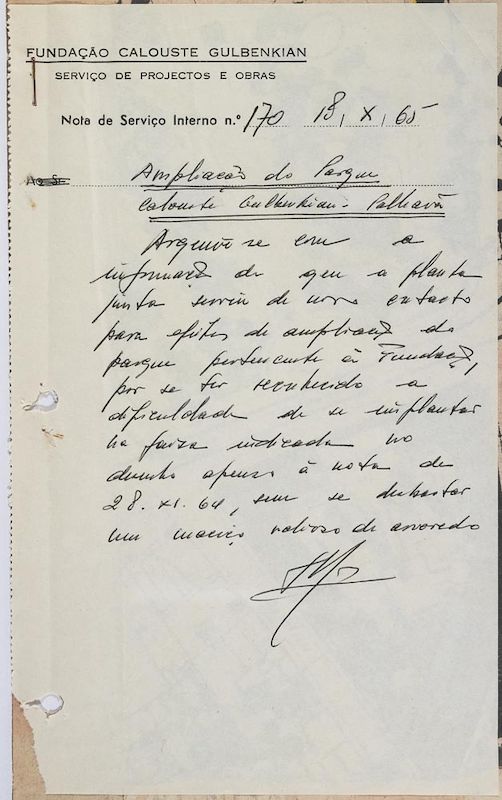 FUNDAÇÃO CALOUSTE GULBENKIAN
SERVIÇO DE PROJECTOS E OBRAS
Nota de Serviço Interno n.º 170 18, X, 65
Ao Sr.
Ampliação do Parque
Calouste Gulbenkian - Palhavã
Arquive-se com a
informação de que a planta
junta serviu de novo contacto
para efeitos de ampliação do
parque pertencente à Fundação,
por se ter reconhecido a
dificuldade de se implantar
na faixa indicada no
desenho apenso à nota de
28. XI. 64, sem se desbastar
um maciço valioso de arvoredo